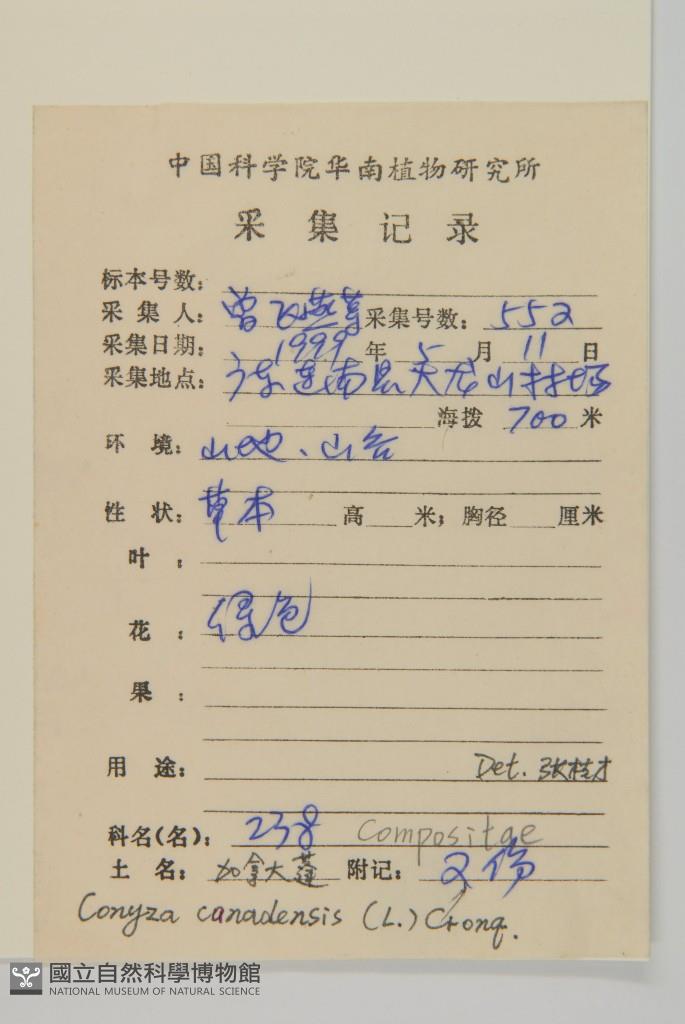 中国科学院华南植物研究所
采集记录
标本号数：
采集人：曾飞燕等 采集号数：552
采集日期：1999年5月11日
采集地点：广东连南县天龙山林场
海拨 700 米
环境：山地、山谷
性状：草本 高 米；胸径 厘米
叶：
花：绿色
果：
用途：
Det. 张桂才
科名(名)：238 Compositae
土名：加拿大蓬 附记：2份
Conyza canadensis (L.) Cronq.
國立自然科學博物館
NATIONAL MUSEUM OF NATURAL SCIENCE